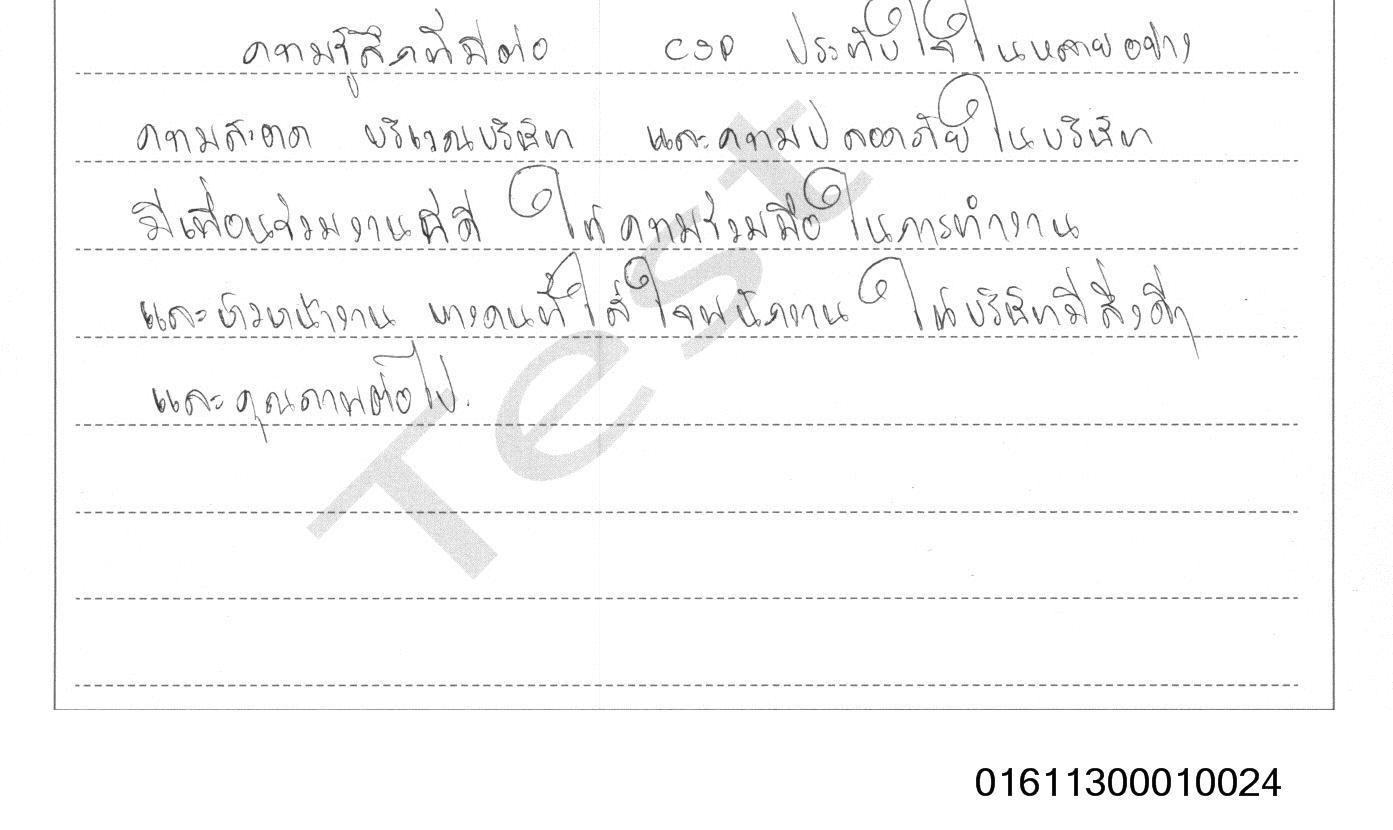 ความรู้สึกที่มีต่อ CSP ประทับใจในหลายอย่าง
ความสะอาด บริเวณบริษัท และความปลอดภัยในบริษัท
มีเพื่อนร่วมงานที่ดี ให้ความร่วมมือในการทำงาน
และหัวหน้างาน บางคนที่ใส่ใจพนักงาน ให้บริษัทมีสิ่งดีๆ
และคุณภาพต่อไป.
Test
01611300010024